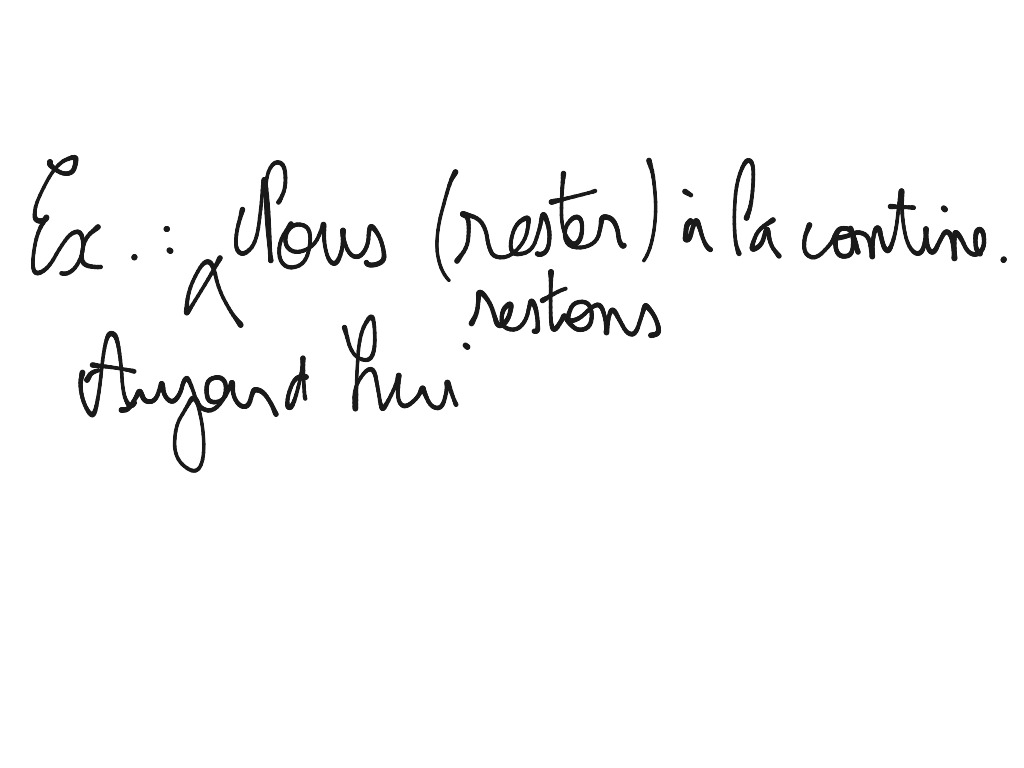 Ex. : Nous (rester) à la cantine.
restons
Aujourd'hui